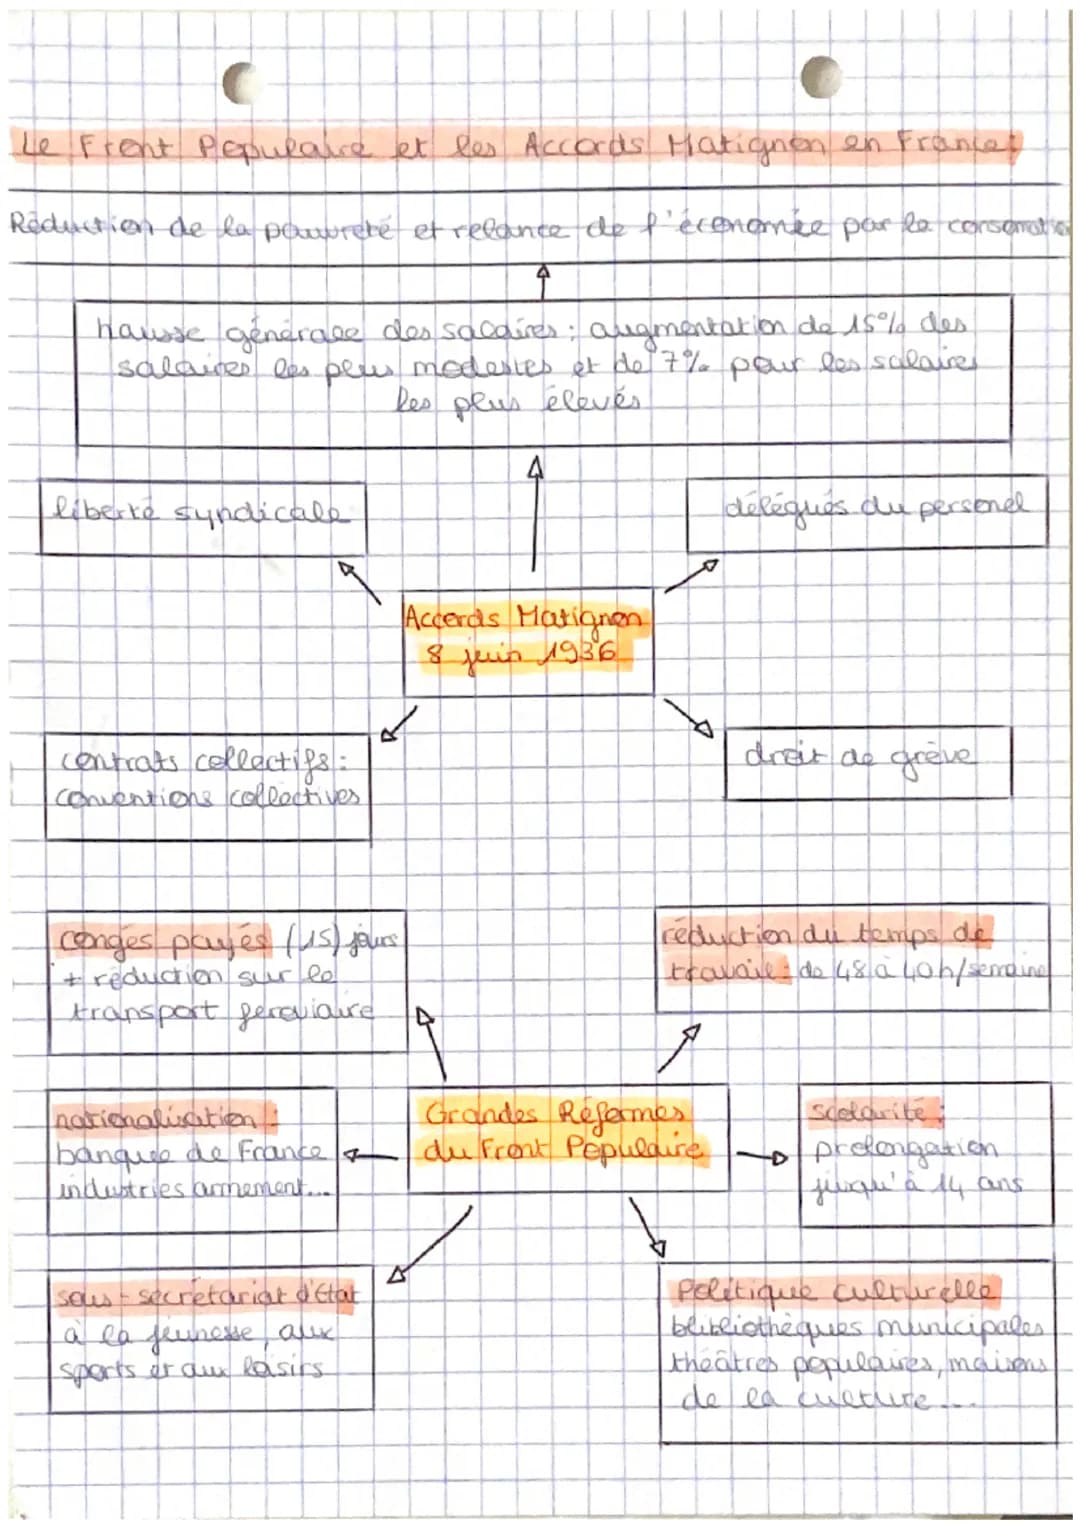 Le Front Populaire et les Accords Matignon en France:
Réduction de la pauvreté et relance de l'économie par la consomatio
hausse générale des salaires : augmentation de 15% des
salaires les plus modestes et de 7% pour les salaires
les plus élevés
liberté syndicale
délégués du personel
Accords Matignon
8 juin 1936
contrats collectifs :
conventions collectives
droit de grève
congés payés (15) jours
+ réduction sur le
transport feroviaire
réduction du temps de
travail : de 48 à 40h/semaine
nationalisation :
banque de France
industries armement...
Grandes Réformes
du Front Populaire
scolarité :
prolongation
jusqu'à 14 ans
sous-secrétariat d'Etat
à la jeunesse, aux
sports et aux loisirs
Politique culturelle
blibliothèques municipales
théâtres populaires, maisons
de la culture...